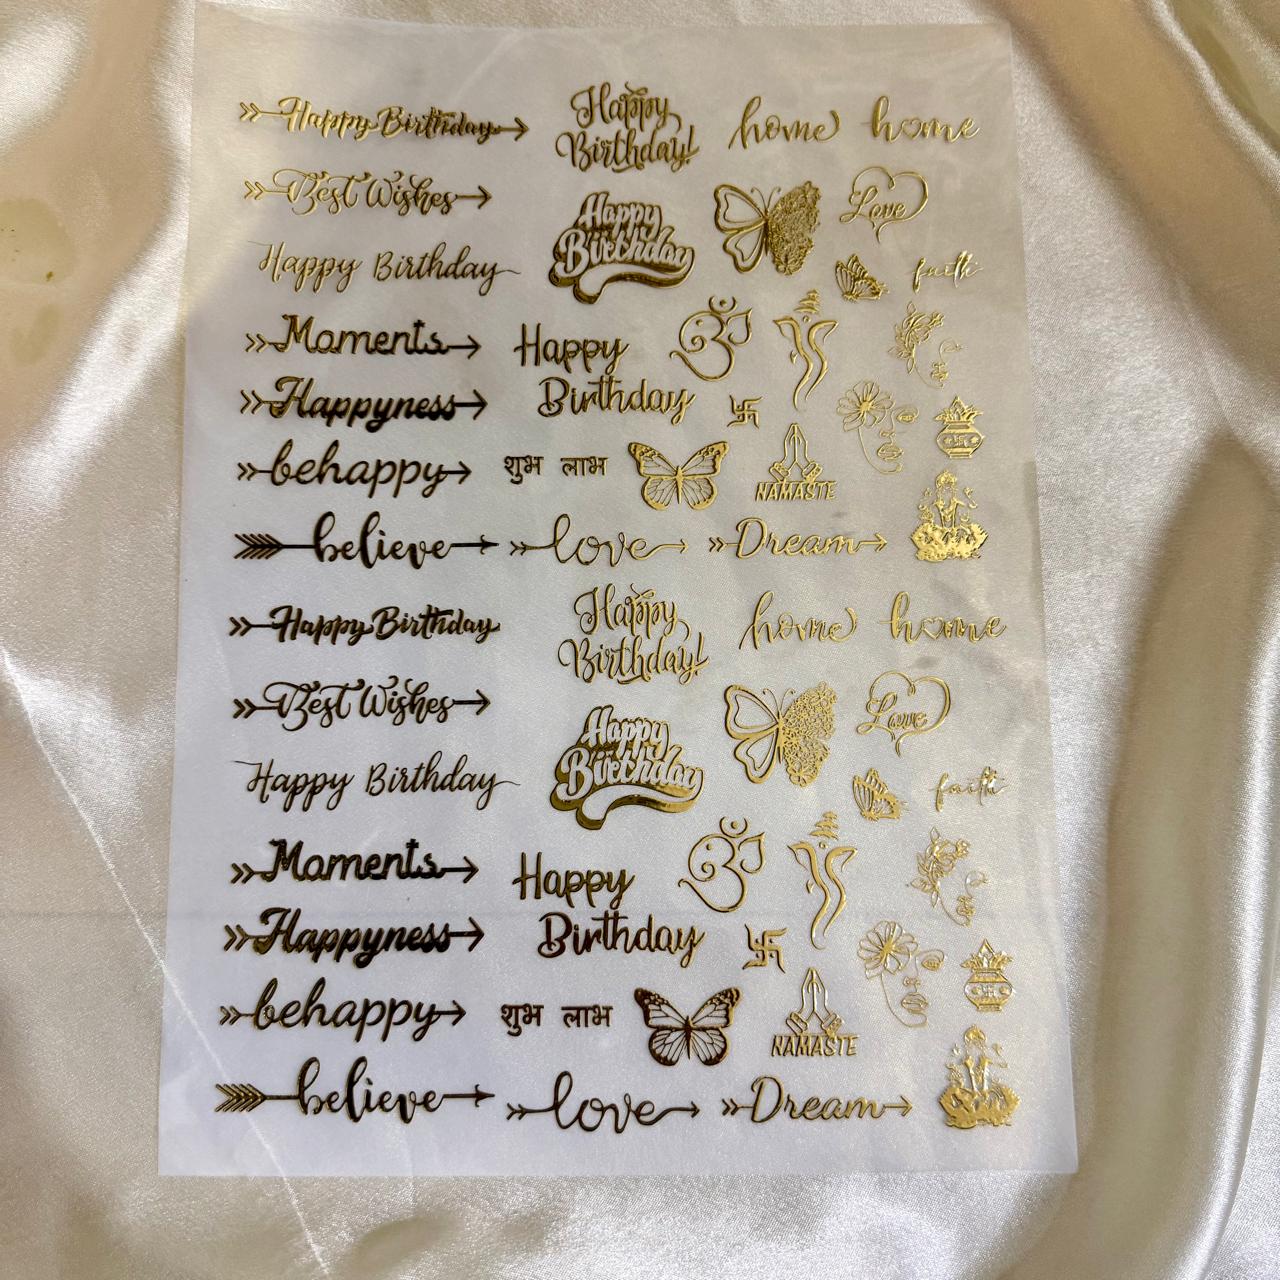 Happy Birthday
Happy
Birthday!
home home
Best Wishes
Happy
Birthday
Love
Happy Birthday
faith
Moments
Happy
Birthday
ॐ
Happyness
behappy
शुभ लाभ
NAMASTE
believe
love
Dream
Happy Birthday
Happy
Birthday!
home home
Best Wishes
Happy
Birthday
Love
Happy Birthday
faith
Moments
Happy
Birthday
ॐ
Happyness
behappy
शुभ लाभ
NAMASTE
believe
love
Dream